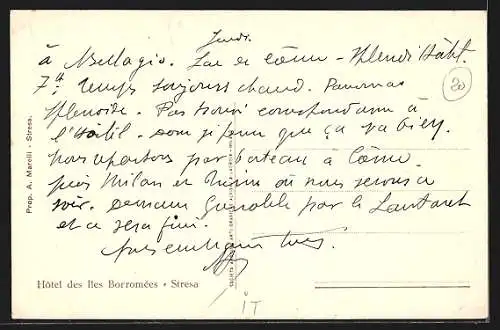 Jeudi.
à Bellagio. Lac de Côme - splendi hôtel.
7h. temps toujours chaud. Panorma
splendide. Pas trouvé correspondance à
l'Hôtel. Donc je pense que ça va bien.
Nous repartons par bateau à Côme.
puis Milan et Turin où nous serons ce
soir. Demain Grenoble par le Lautaret
et ce sera fini.
20
Prop. A. Marelli - Stresa.
Hôtel des Iles Borromées • Stresa
IT